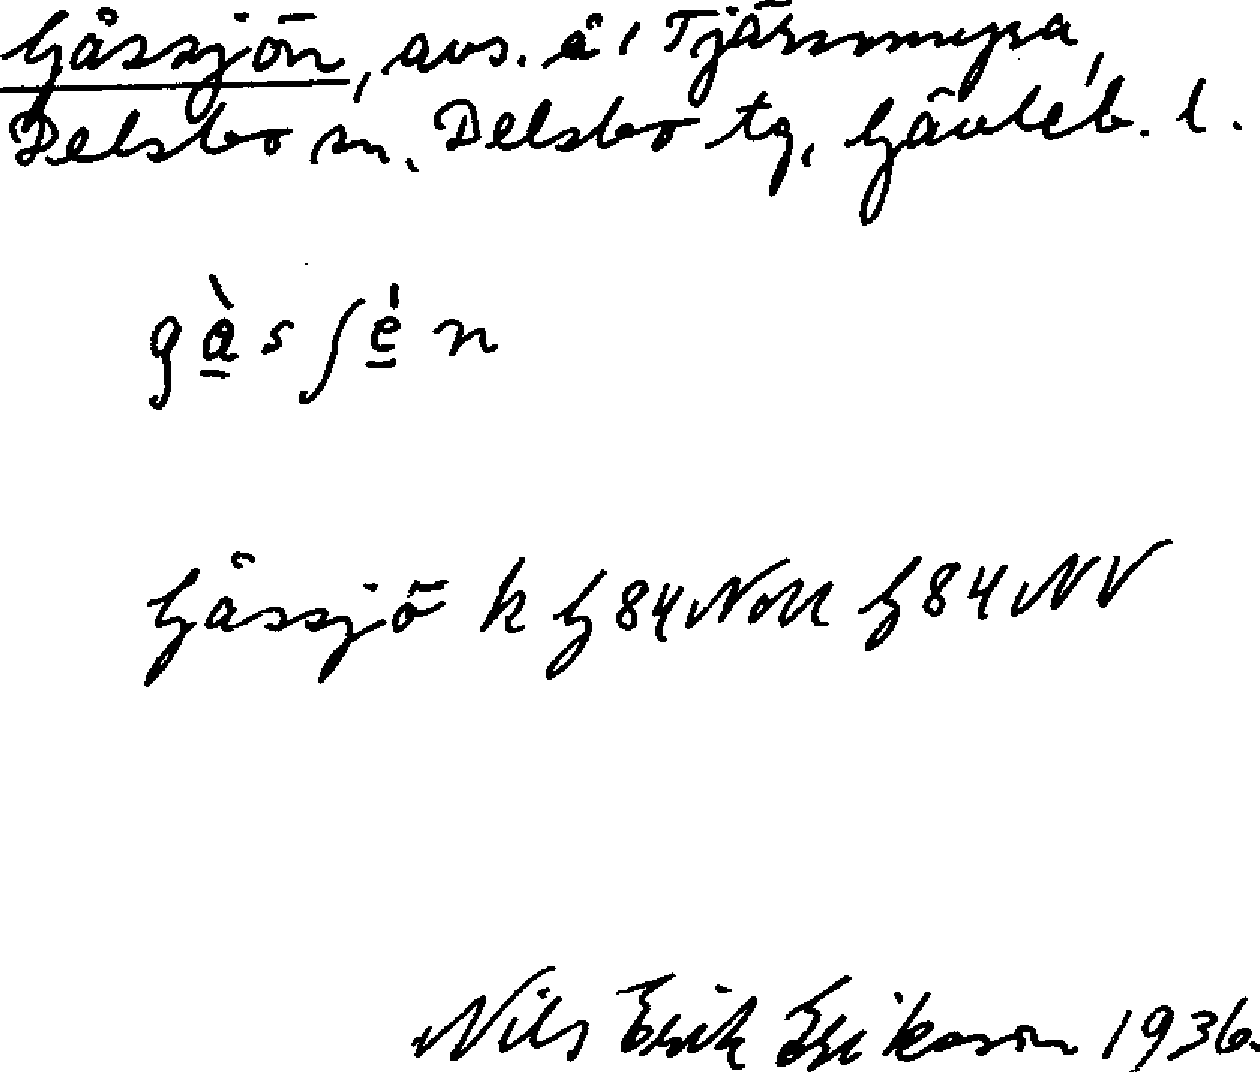 Gåssjön, avs. å i Tjärnmyra,
Delsbo sn. Delsbo tg, Gävleb. l.
gàsʃén
Gåssjö k G 84 G 84 NV
Nils Erik Erikson 1936.